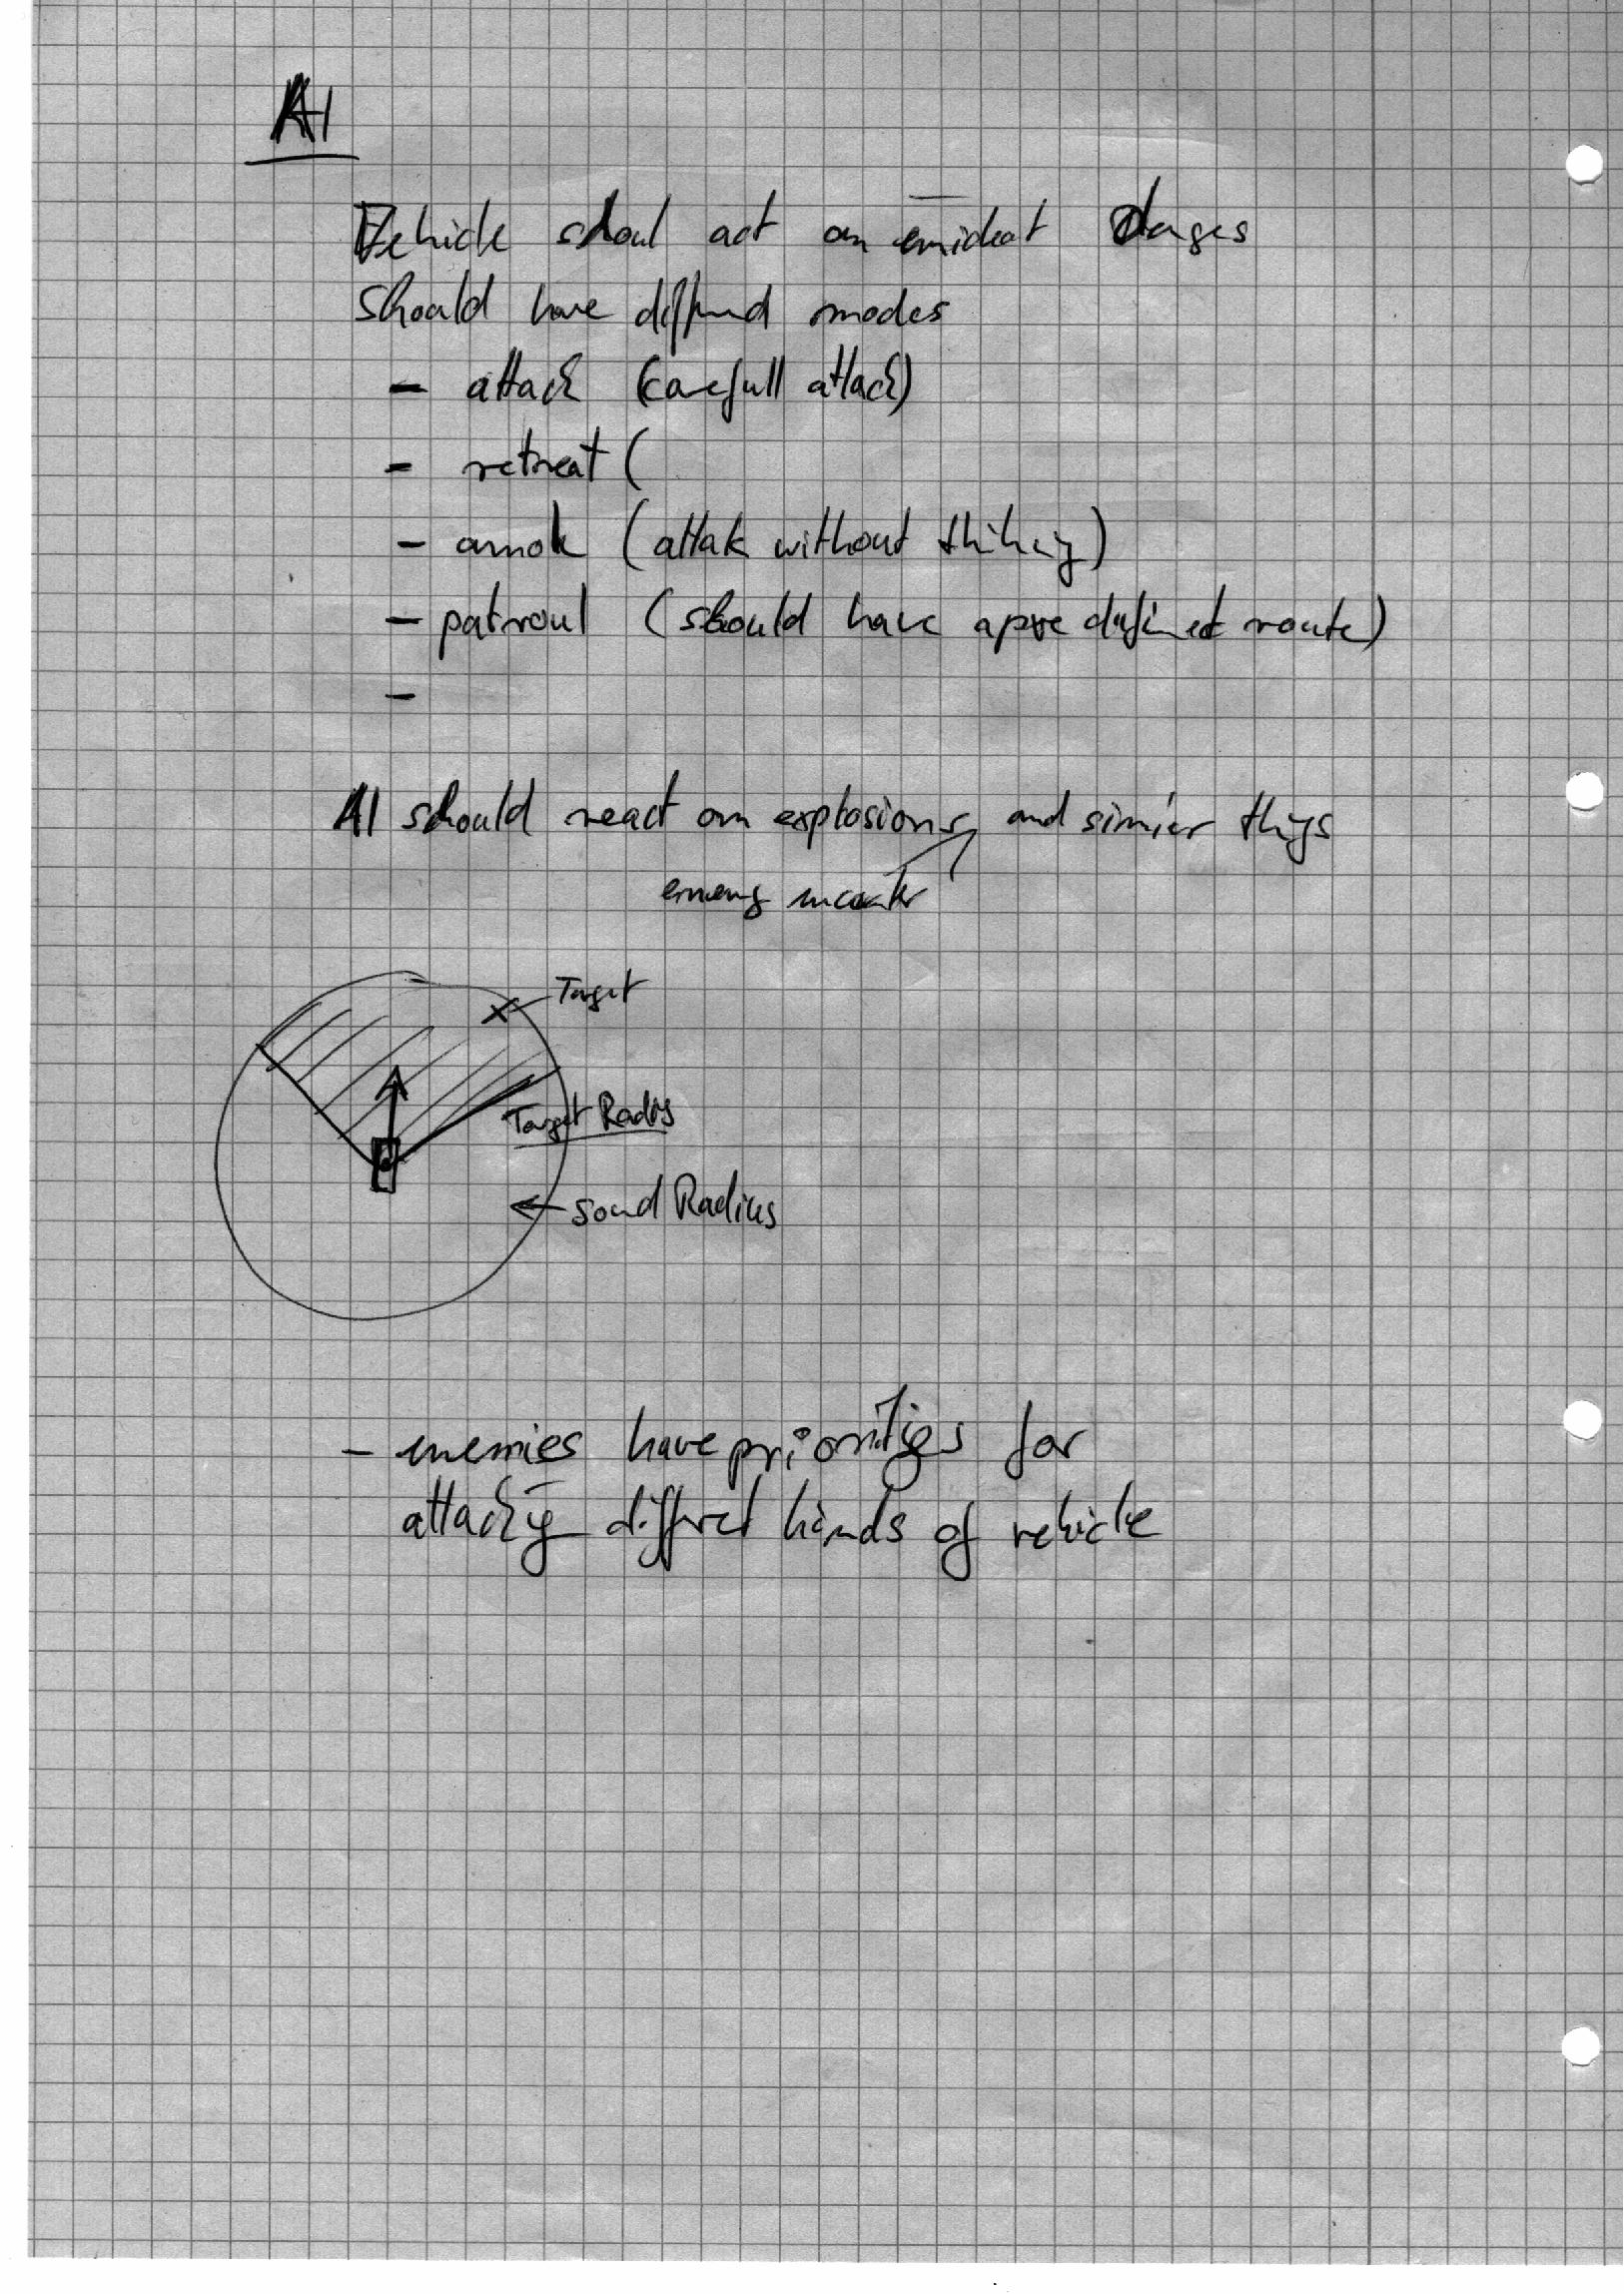 AI
Vehicle shoul act on
Should have modes
- attack (carefull attack)
- retreat (
- amok (attak without thinking)
- patroul (should have a pre defined route)
-
AI should react on explosions, and similer things
Target
Target Radius
Sound Radius
- enemies have priorities for
attacking different kinds of vehicle